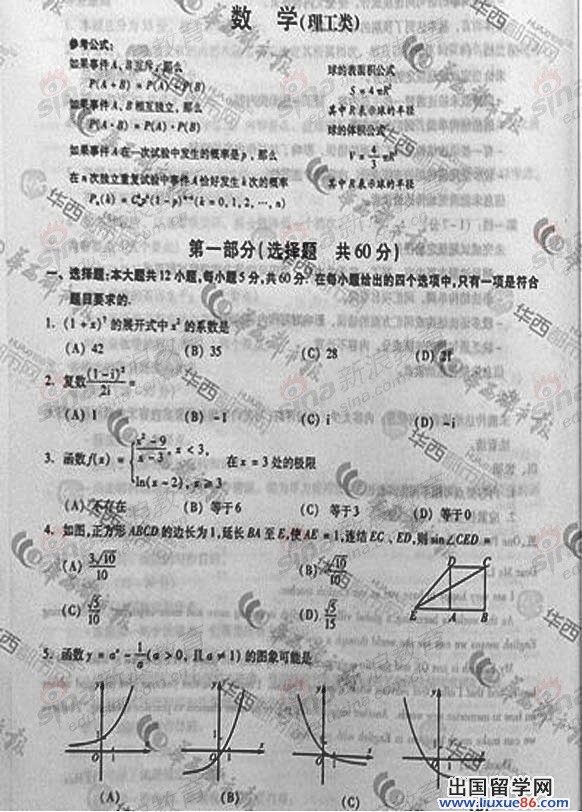 数 学(理工类)
参考公式:
如果事件A、B互斥,那么
P(A+B)=P(A)+P(B)
如果事件A、B相互独立,那么
P(A·B)=P(A)·P(B)
如果事件A在一次试验中发生的概率是p,那么
在n次独立重复试验中事件A恰好发生k次的概率
Pₙ(k)=Cₙᵏpᵏ(1-p)ⁿ⁻ᵏ(k=0,1,2,…,n)
球的表面积公式
S=4πR²
其中R表示球的半径
球的体积公式
V=4/3 πR³
其中R表示球的半径
第一部分(选择题 共60分)
一、选择题:本大题共12小题,每小题5分,共60分.在每小题给出的四个选项中,只有一项是符合
题目要求的.
1. (1+x)⁷的展开式中x²的系数是
(A) 42 (B) 35 (C) 28 (D) 21
2. 复数(1-i)²/2i=
(A) 1 (B) -1 (C) i (D) -i
3. 函数f(x)={(x²-9)/(x-3), x<3, ln(x-2), x≥3 在x=3处的极限
(A) 不存在 (B) 等于6 (C) 等于3 (D) 等于0
4. 如图,正方形ABCD的边长为1,延长BA至E,使AE=1,连结EC、ED,则sin∠CED=
(A) 3√10/10 (B) √10/10
(C) √5/10 (D) √5/15
D C
E A B
5. 函数y=aˣ-1/a(a>0,且a≠1)的图象可能是
y 1 O 1 x
y 1 O 1 x
y 1 O 1 x
y 1 O 1 x
(A) (B) (C)
出国留学网
www.liuxue86.com
华西都市报
华西都市网
sina 新浪